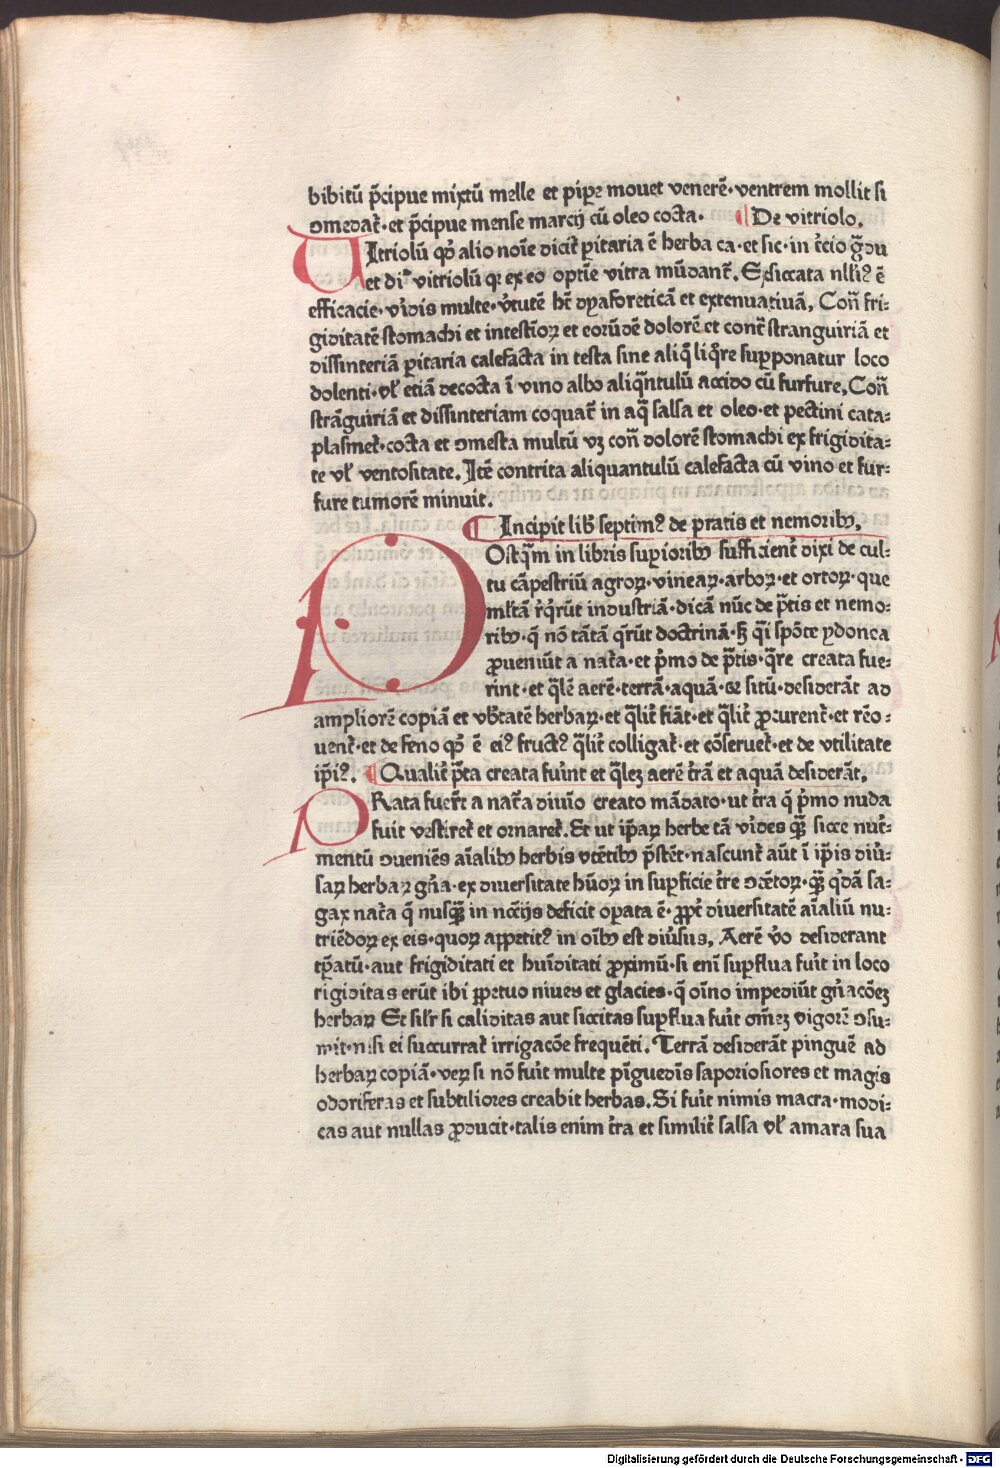 bibitū p̄cipue mixtū melle et pipe mouet venerē·ventrem mollit si
ɔmedat̄·et p̄cipue mense marcij cū oleo cocta· ¶ De vitriolo.
UItriolū qđ alio noīe dicit̄ ꝑitaria ē herba ca·et sic·in t̄cio g̃du
et diꝰ vitriolū qꝛ ex eo optīe vitra mūdant̄. Exsiccata nlliꝰ ē
efficacie·vi̓dis multe·v̓tutē hȝ dyaforeticā et extenuatiuā, Con̄ fri⸗
giditatē stomachi et intestīoꝝ et eorūdē dolorē et cont̄ stranguiriā et
dissinteriā ꝑitaria calefacta in testa sine aliq̃ liq̃re supponatur loco
dolenti·vl̓ etiā decocta ī vino albo aliq̃ntulū accido cū furfure, Con̄
strāguiriā et dissinteriam coquat̄ in aq̃ salsa et oleo·et pectini cata⸗
plasmet̄·cocta et ɔmesta multū vȝ con̄ dolorē stomachi ex frigidita⸗
te vl̓ ventositate. Itē contrita aliquantulū calefacta cū vino et fur⸗
fure tumorē minuit.
¶ Incipit lib̓ septimꝰ de pratis et nemoribꝰ,
POstq̃m in libris suꝑioribꝰ sufficient̄ dixi de cul⸗
tu cāpestriū agroꝝ·vineaꝝ·arboꝝ·et ortoꝝ·que
ml̓tā r̓q̓rūt industriā·dicā nūc de p̃tis et nemo⸗
ribꝰ·q̃ nō tātā q̓rūt doctrinā·ꜩ q̃i spōte ydonea
ꝓueniūt a nat̓a·et p̓mo de p̃tis·q̃re creata fue⸗
rint·et q̃lē aerē·terrā·aquā·⁊ sitū·desiderāt ad
ampliorē copiā et vb̓tatē herbaꝝ·et q̃lit̓ fiāt·et q̃lit̓ ꝓcurent̄·et rēo⸗
uent̄·et de feno qđ ē eiꝰ fructꝰ q̃lit̓ colligat̄·et cōseruet̄·et de vtilitate
ip̄iꝰ. ¶ Qualit̓ p̃ta creata fu̓int et q̃leȝ aerē t̓rā et aquā desiderāt,
PRata fuer̄t a nat̓a diuīo creato mādato·ut t̓ra q̃ p̓mo nuda
fuit vestiret̄ et ornaret̄. Et ut ip̄aꝝ herbe tā vi̓des qꝫ̃ sicce nut̓⸗
mentū ɔueniēs aīalibꝰ herbis vtētibꝰ p̄stēt·nascunt̄ aūt ī ip̄is diu̓⸗
saꝝ herbaꝝ gn̄a·ex diuersitate hūoꝝ in suꝑficie t̓re ɔtētoꝝ·qꝫ̃ q̓dā sa⸗
gax nat̓a q̃ nusqꝫ̃ in nc̄cijs deficit oꝑata ē·ꝓpt̓ diuersitatē aīaliū nu⸗
triēdoꝝ ex eis·quoꝝ appetitꝰ in oībꝰ est diu̓sus, Aerē v̓o desiderant
tp̄atū·aut frigiditati et hūiditati ꝓximū·si enī suꝑflua fu̓it in loco
rigiditas erūt ibi ꝑpetuo niues et glacies·q̃ oīno impediūt gn̄acōeȝ
herbaꝝ Et sil̓r si caliditas aut siccitas suꝑflua fu̓it om̄eȝ vigorē ɔsu⸗
mit·nisi ei succurrat̄ irrigacōe frequēti. Terrā desiderāt pinguē ad
herbaꝝ copiā·veꝝ si nō fu̓it multe pīguedīs saporiosiores et magis
odoriferas et subtiliores creabit herbas. Si fu̓it nimis macra·modi⸗
cas aut nullas ꝓducit·talis enim t̓ra et similit̓ salsa vl̓ amara sua
Digitalisierung gefördert durch die Deutsche Forschungsgemeinschaft - DFG